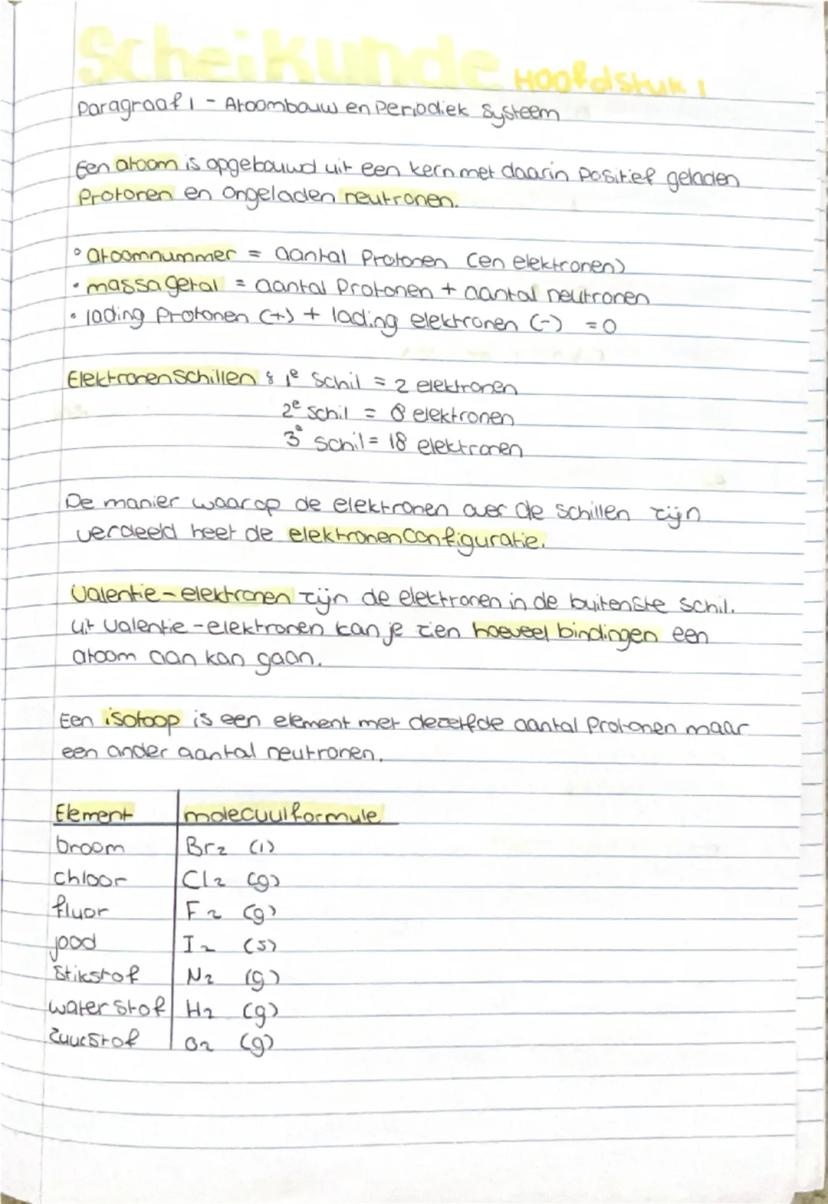 Scheikunde Hoofdstuk 1
Paragraaf 1 - Atoombouw en Periodiek Systeem
Een atoom is opgebouwd uit een kern met daarin positief geladen
Protonen en ongeladen neutronen.
° atoomnummer = aantal Protonen (en elektronen)
• massagetal = aantal Protonen + aantal neutronen
• lading Protonen (+) + lading elektronen (-) = 0
Elektronenschillen : 1e schil = 2 elektronen
2e schil = 8 elektronen
3e schil = 18 elektronen
De manier waarop de elektronen over de schillen zijn
verdeeld heet de elektronenconfiguratie.
Valentie-elektronen zijn de elektronen in de buitenste schil.
uit valentie-elektronen kan je zien hoeveel bindingen een
atoom aan kan gaan.
Een isotoop is een element met dezelfde aantal Protonen maar
een ander aantal neutronen.
Element molecuulformule
broom Br2 (l)
Chloor Cl2 (g)
fluor F2 (g)
jood I2 (s)
Stikstof N2 (g)
waterstof H2 (g)
Zuurstof O2 (g)